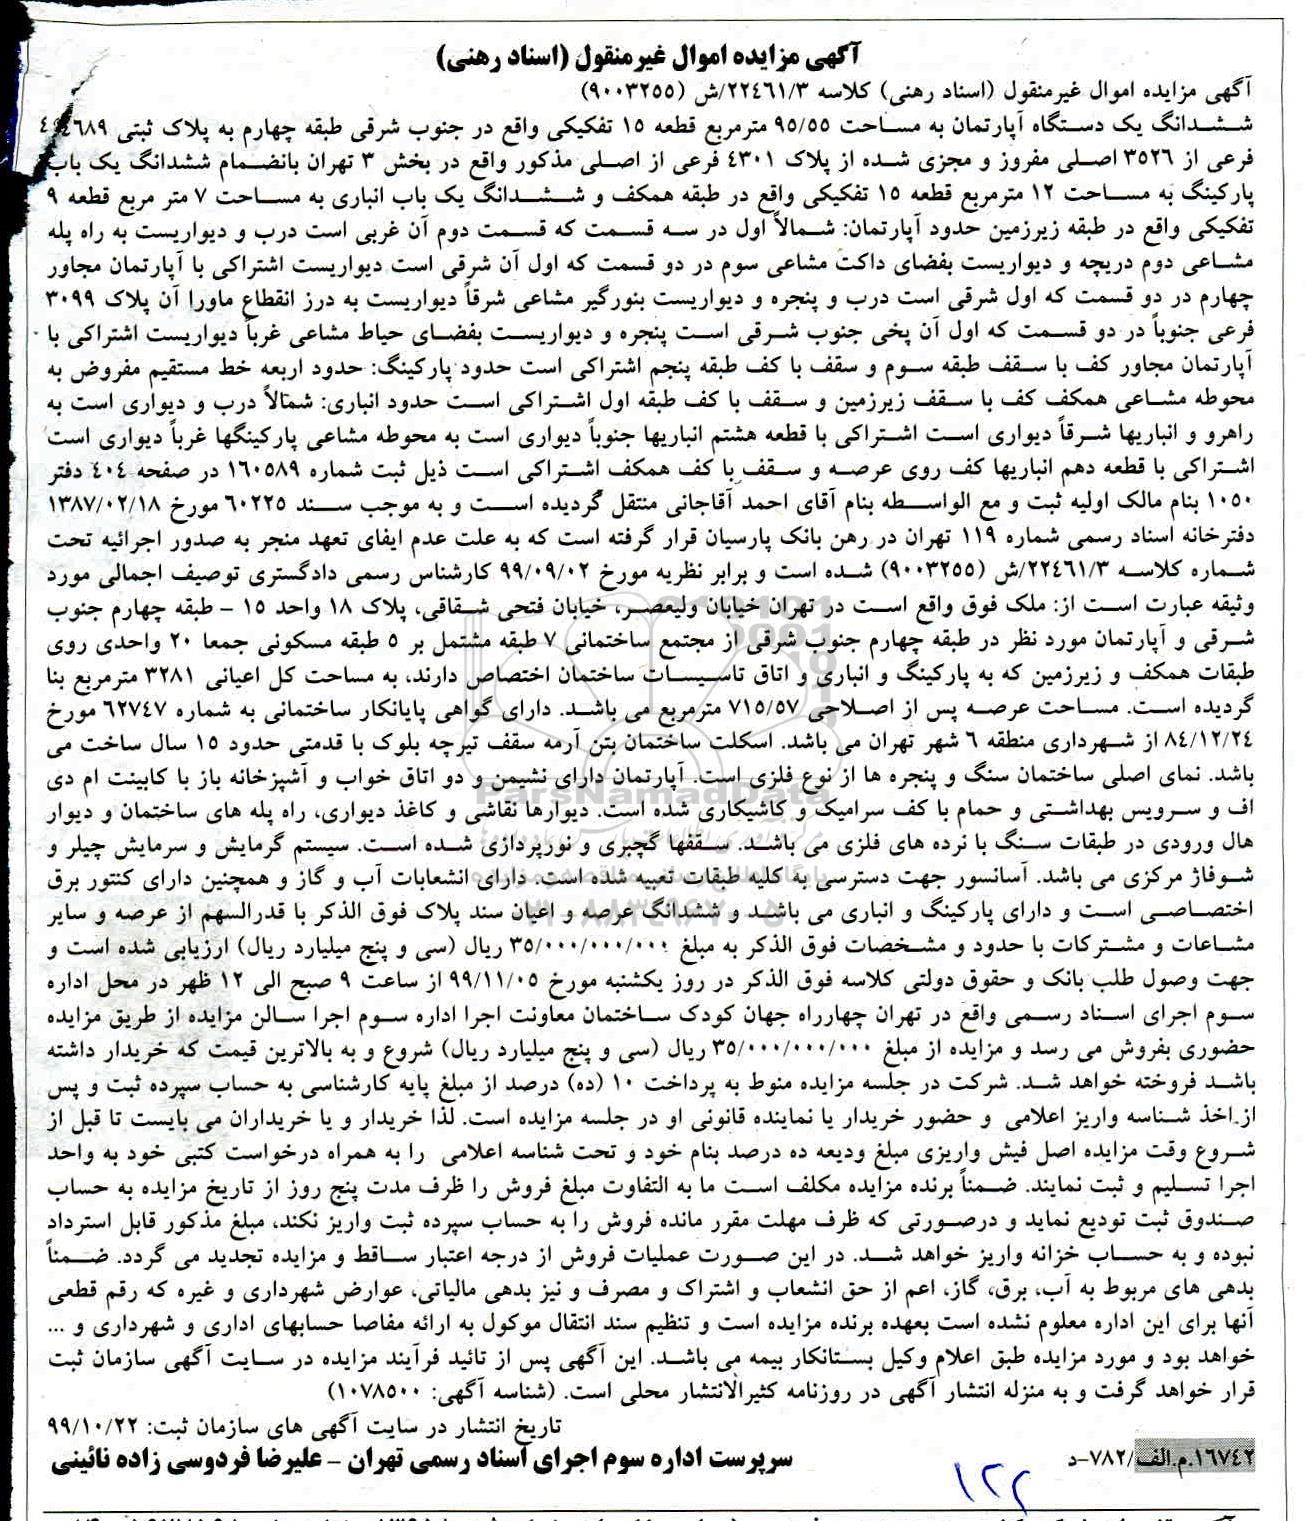 آگهی مزایده اموال غیرمنقول (اسناد رهنی)
آگهی مزایده اموال غیرمنقول (اسناد رهنی) کلاسه ۲۲۴۶۱/۳/ش (۹۰۰۳۲۵۵)
ششدانگ یک دستگاه آپارتمان به مساحت ۹۵/۵۵ مترمربع قطعه ۱۵ تفکیکی واقع در جنوب شرقی طبقه چهارم به پلاک ثبتی
فرعی از ۳۵۲۶ اصلی مفروز و مجزی شده از پلاک ۴۳۰۱ فرعی از اصلی مذکور واقع در بخش ۳ تهران بانضمام ششدانگ یک باب
پارکینگ به مساحت ۱۲ مترمربع قطعه ۱۵ تفکیکی واقع در طبقه همکف و ششدانگ یک باب انباری به مساحت ۷ متر مربع قطعه ۹
تفکیکی واقع در طبقه زیرزمین حدود آپارتمان: شمالاً اول در سه قسمت که قسمت دوم آن غربی است درب و دیواریست به راه پله
مشاعی دوم دریچه و دیواریست بفضای داکت مشاعی سوم در دو قسمت که اول آن شرقی است دیواریست اشتراکی با آپارتمان مجاور
چهارم در دو قسمت که اول شرقی است درب و پنجره و دیواریست بنورگیر مشاعی شرقاً دیواریست به درز انقطاع ماورا آن پلاک ۳۰۹۹
فرعی جنوباً در دو قسمت که اول آن پخی جنوب شرقی است پنجره و دیواریست بفضای حیاط مشاعی غرباً دیواریست اشتراکی با
آپارتمان مجاور کف با سقف طبقه سوم و سقف با کف طبقه پنجم اشتراکی است حدود پارکینگ: حدود اربعه خط مستقیم مفروض به
محوطه مشاعی همکف کف با سقف زیرزمین و سقف با کف طبقه اول اشتراکی است حدود انباری: شمالاً درب و دیواری است به
راهرو و انباریها شرقاً دیواری است اشتراکی با قطعه هشتم انباریها جنوباً دیواری است به محوطه مشاعی پارکینگها غرباً دیواری است
اشتراکی با قطعه دهم انباریها کف روی عرصه و سقف با کف همکف اشتراکی است ذیل ثبت شماره ۱۶۰۵۸۹ در صفحه ۴۰۴ دفتر
۱۰۵۰ بنام مالک اولیه ثبت و مع الواسطه بنام آقای احمد آقاجانی منتقل گردیده است و به موجب سند ۶۰۲۲۵ مورخ ۱۳۸۷/۰۲/۱۸
دفترخانه اسناد رسمی شماره ۱۱۹ تهران در رهن بانک پارسیان قرار گرفته است که به علت عدم ایفای تعهد منجر به صدور اجرائیه تحت
شماره کلاسه ۲۲۴۶۱/۳/ش (۹۰۰۳۲۵۵) شده است و برابر نظریه مورخ ۹۹/۰۹/۰۲ کارشناس رسمی دادگستری توصیف اجمالی مورد
وثیقه عبارت است از: ملک فوق واقع است در تهران خیابان ولیعصر، خیابان فتحی شقاقی، پلاک ۱۸ واحد ۱۵ – طبقه چهارم جنوب
شرقی و آپارتمان مورد نظر در طبقه چهارم جنوب شرقی از مجتمع ساختمانی ۷ طبقه مشتمل بر ۵ طبقه مسکونی جمعا ۲۰ واحدی روی
طبقات همکف و زیرزمین که به پارکینگ و انباری و اتاق تاسیسات ساختمان اختصاص دارند، به مساحت کل اعیانی ۳۲۸۱ مترمربع بنا
گردیده است. مساحت عرصه پس از اصلاحی ۷۱۵/۵۷ مترمربع می باشد. دارای گواهی پایانکار ساختمانی به شماره ۶۲۷۴۷ مورخ
۸۴/۱۲/۲۴ از شهرداری منطقه ۶ شهر تهران می باشد. اسکلت ساختمان بتن آرمه سقف تیرچه بلوک با قدمتی حدود ۱۵ سال ساخت می
باشد. نمای اصلی ساختمان سنگ و پنجره ها از نوع فلزی است. آپارتمان دارای نشیمن و دو اتاق خواب و آشپزخانه باز با کابینت ام دی
اف و سرویس بهداشتی و حمام با کف سرامیک و کاشیکاری شده است. دیوارها نقاشی و کاغذ دیواری، راه پله های ساختمان و دیوار
هال ورودی در طبقات سنگ با نرده های فلزی می باشد. سقفها گچبری و نورپردازی شده است. سیستم گرمایش و سرمایش چیلر و
شوفاژ مرکزی می باشد. آسانسور جهت دسترسی به کلیه طبقات تعبیه شده است. دارای انشعابات آب و گاز و همچنین دارای کنتور برق
اختصاصی است و دارای پارکینگ و انباری می باشد و ششدانگ عرصه و اعیان سند پلاک فوق الذکر با قدرالسهم از عرصه و سایر
مشاعات و مشترکات با حدود و مشخصات فوق الذکر به مبلغ ۳۵/۰۰۰/۰۰۰/۰۰۰ ریال (سی و پنج میلیارد ریال) ارزیابی شده است و
جهت وصول طلب بانک و حقوق دولتی کلاسه فوق الذکر در روز یکشنبه مورخ ۹۹/۱۱/۰۵ از ساعت ۹ صبح الی ۱۲ ظهر در محل اداره
سوم اجرای اسناد رسمی واقع در تهران چهارراه جهان کودک ساختمان معاونت اجرا اداره سوم اجرا سالن مزایده از طریق مزایده
حضوری بفروش می رسد و مزایده از مبلغ ۳۵/۰۰۰/۰۰۰/۰۰۰ ریال (سی و پنج میلیارد ریال) شروع و به بالاترین قیمت که خریدار داشته
باشد فروخته خواهد شد. شرکت در جلسه مزایده منوط به پرداخت ۱۰ (ده) درصد از مبلغ پایه کارشناسی به حساب سپرده ثبت و پس
از اخذ شناسه واریز اعلامی و حضور خریدار یا نماینده قانونی او در جلسه مزایده است. لذا خریدار و یا خریداران می بایست تا قبل از
شروع وقت مزایده اصل فیش واریزی مبلغ ودیعه ده درصد بنام خود و تحت شناسه اعلامی را به همراه درخواست کتبی خود به واحد
اجرا تسلیم و ثبت نمایند. ضمناً برنده مزایده مکلف است ما به التفاوت مبلغ فروش را ظرف مدت پنج روز از تاریخ مزایده به حساب
صندوق ثبت تودیع نماید و درصورتی که ظرف مهلت مقرر مانده فروش را به حساب سپرده ثبت واریز نکند، مبلغ مذکور قابل استرداد
نبوده و به حساب خزانه واریز خواهد شد. در این صورت عملیات فروش از درجه اعتبار ساقط و مزایده تجدید می گردد. ضمناً
بدهی های مربوط به آب، برق، گاز، اعم از حق انشعاب و اشتراک و مصرف و نیز بدهی مالیاتی، عوارض شهرداری و غیره که رقم قطعی
آنها برای این اداره معلوم نشده است بعهده برنده مزایده است و تنظیم سند انتقال موکول به ارائه مفاصا حسابهای اداری و شهرداری و ...
خواهد بود و مورد مزایده طبق اعلام وکیل بستانکار بیمه می باشد. این آگهی پس از تائید فرآیند مزایده در سایت آگهی سازمان ثبت
قرار خواهد گرفت و به منزله انتشار آگهی در روزنامه کثیرالانتشار محلی است. (شناسه آگهی: ۱۰۷۸۵۰۰)
تاریخ انتشار در سایت آگهی های سازمان ثبت: ۹۹/۱۰/۲۲
سرپرست اداره سوم اجرای اسناد رسمی تهران – علیرضا فردوسی زاده نائینی
۱۶۷۴۲.م.الف/۷۸۲-د
۱۲۲
ParsNamadData